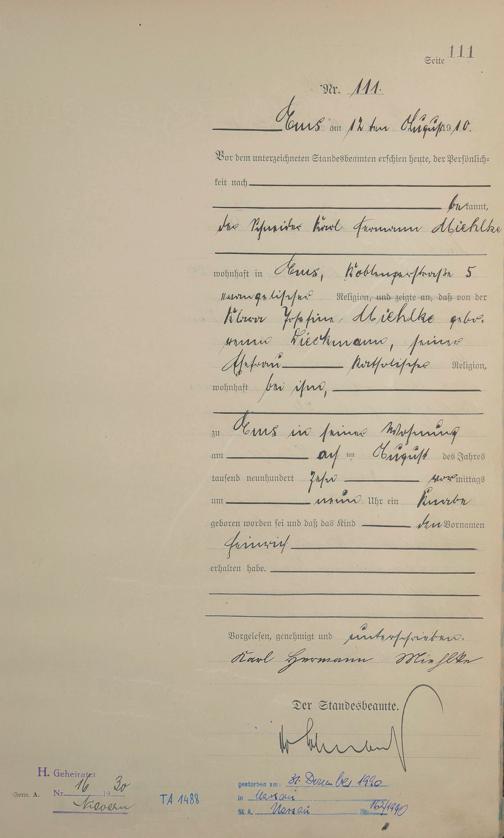 Seite 111
Nr. 111.
Ems am 12ten August 1910.
Vor dem unterzeichneten Standesbeamten erschien heute, der Persönlich-
keit nach
bekannt,
der Schneider Karl Hermann Miehlke
wohnhaft in Ems, Koblenzerstraße 5
evangelischer Religion, und zeigte an, daß von der
Klara Josefine Miehlke gebo-
renen Dieckmann, seiner
Ehefrau katholischer Religion,
wohnhaft bei ihm,
zu Ems in seiner Wohnung
am acht August des Jahres
tausend neunhundert zehn vormittags
um neun Uhr ein Knabe
geboren worden sei und daß das Kind den Vornamen
Heinrich
erhalten habe.
Vorgelesen, genehmigt und unterschrieben.
Karl Hermann Miehlke
Der Standesbeamte.
H. Geheiratet
Gem. A. Nr. 16 1930
Nievern
TA 1488
gestorben am: 31. Dezember 1990
in Nassau
St. A. Nassau